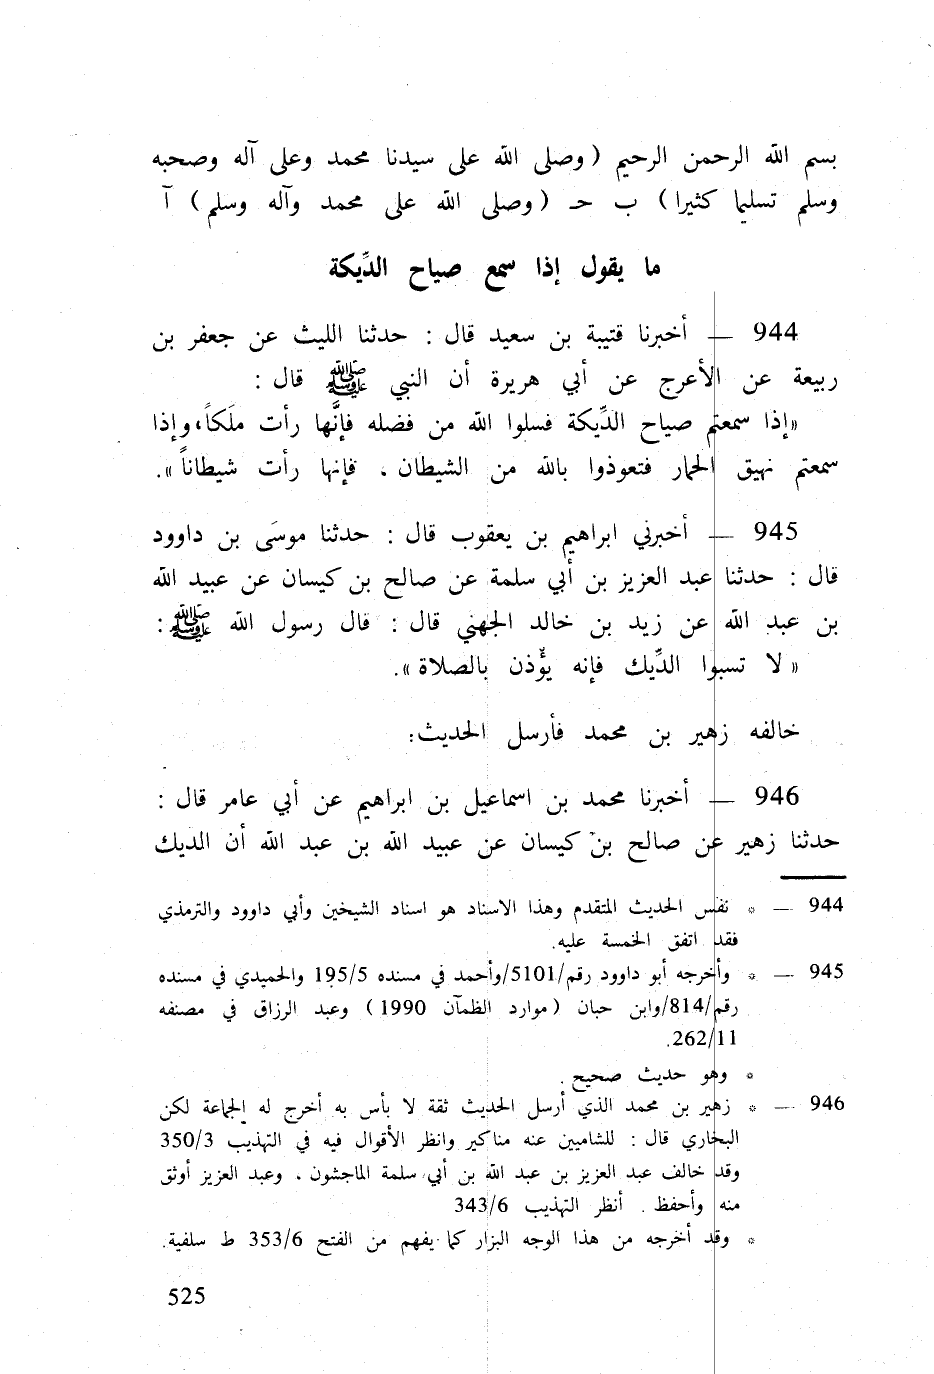 بسم الله الرحمن الرحيم ( وصلى الله على سيدنا محمد وعلى آله وصحبه
وسلم تسليما كثيرا ) ب حـ ( وصلى الله على محمد وآله وسلم ) آ
ما يقول إذا سمع صياح الدِّيكة
944 — أخبرنا قتيبة بن سعيد قال : حدثنا الليث عن جعفر بن
ربيعة عن الأعرج عن أبي هريرة أن النبي ﷺ قال :
«إذا سمعتم صياح الدِّيكة فسلوا الله من فضله فإنَّها رأت ملَكاً، وإذا
سمعتم نهيق الحمار فتعوذوا بالله من الشيطان . فإنها رأت شيطاناً ».
945 — أخبرني ابراهيم بن يعقوب قال : حدثنا موسَى بن داوود
قال : حدثنا عبد العزيز بن أبي سلمة عن صالح بن كيسان عن عبيد الله
بن عبد الله عن زيد بن خالد الجهني قال : قال رسول الله ﷺ :
« لا تسبوا الدِّيك فإنه يؤذن بالصلاة ».
خالفه زهير بن محمد فأرسل الحديث:
946 — أخبرنا محمد بن اسماعيل بن ابراهيم عن أبي عامر قال :
حدثنا زهير عن صالح بن كيسان عن عبيد الله بن عبد الله أن الديك
944 — * نفس الحديث المتقدم وهذا الاسناد هو اسناد الشيخين وأبي داوود والترمذي
فقد اتفق الخمسة عليه.
945 — * وأخرجه أبو داوود رقم/5101/وأحمد في مسنده 195/5 والحميدي في مسنده
رقم/814/وابن حبان ( موارد الظمآن 1990 ) وعبد الرزاق في مصنفه
262/11.
* وهو حديث صحيح .
946 — * زهير بن محمد الذي أرسل الحديث ثقة لا بأس به أخرج له الجماعة لكن
البخاري قال : للشاميين عنه مناكير وانظر الأقوال فيه في التهذيب 350/3
وقد خالف عبد العزيز بن عبد الله بن أبي سلمة الماجشون . وعبد العزيز أوثق
منه وأحفظ . أنظر التهذيب 343/6
* وقد أخرجه من هذا الوجه البزار كما يفهم من الفتح 353/6 ط سلفية.
525